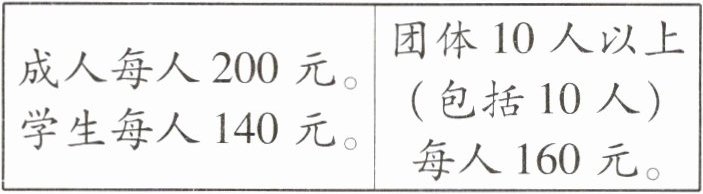 成人每人 200 元。
学生每人 140 元。
团体 10 人以上
(包括 10 人)
每人 160 元。